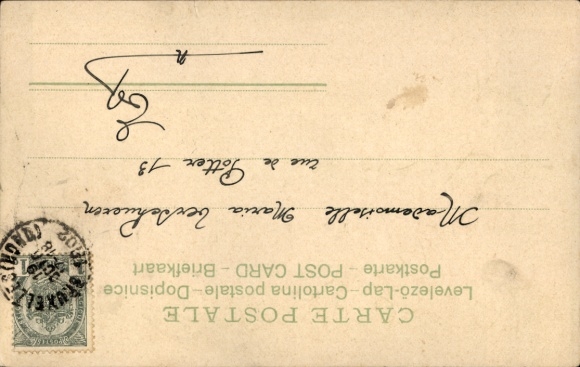 CARTE POSTALE
Levelező-Lap – Cartolina postale – Dopisnice
Postkarte – POST CARD – Briefkaart
Mademoiselle Maria Verschueren
rue de Potter 13